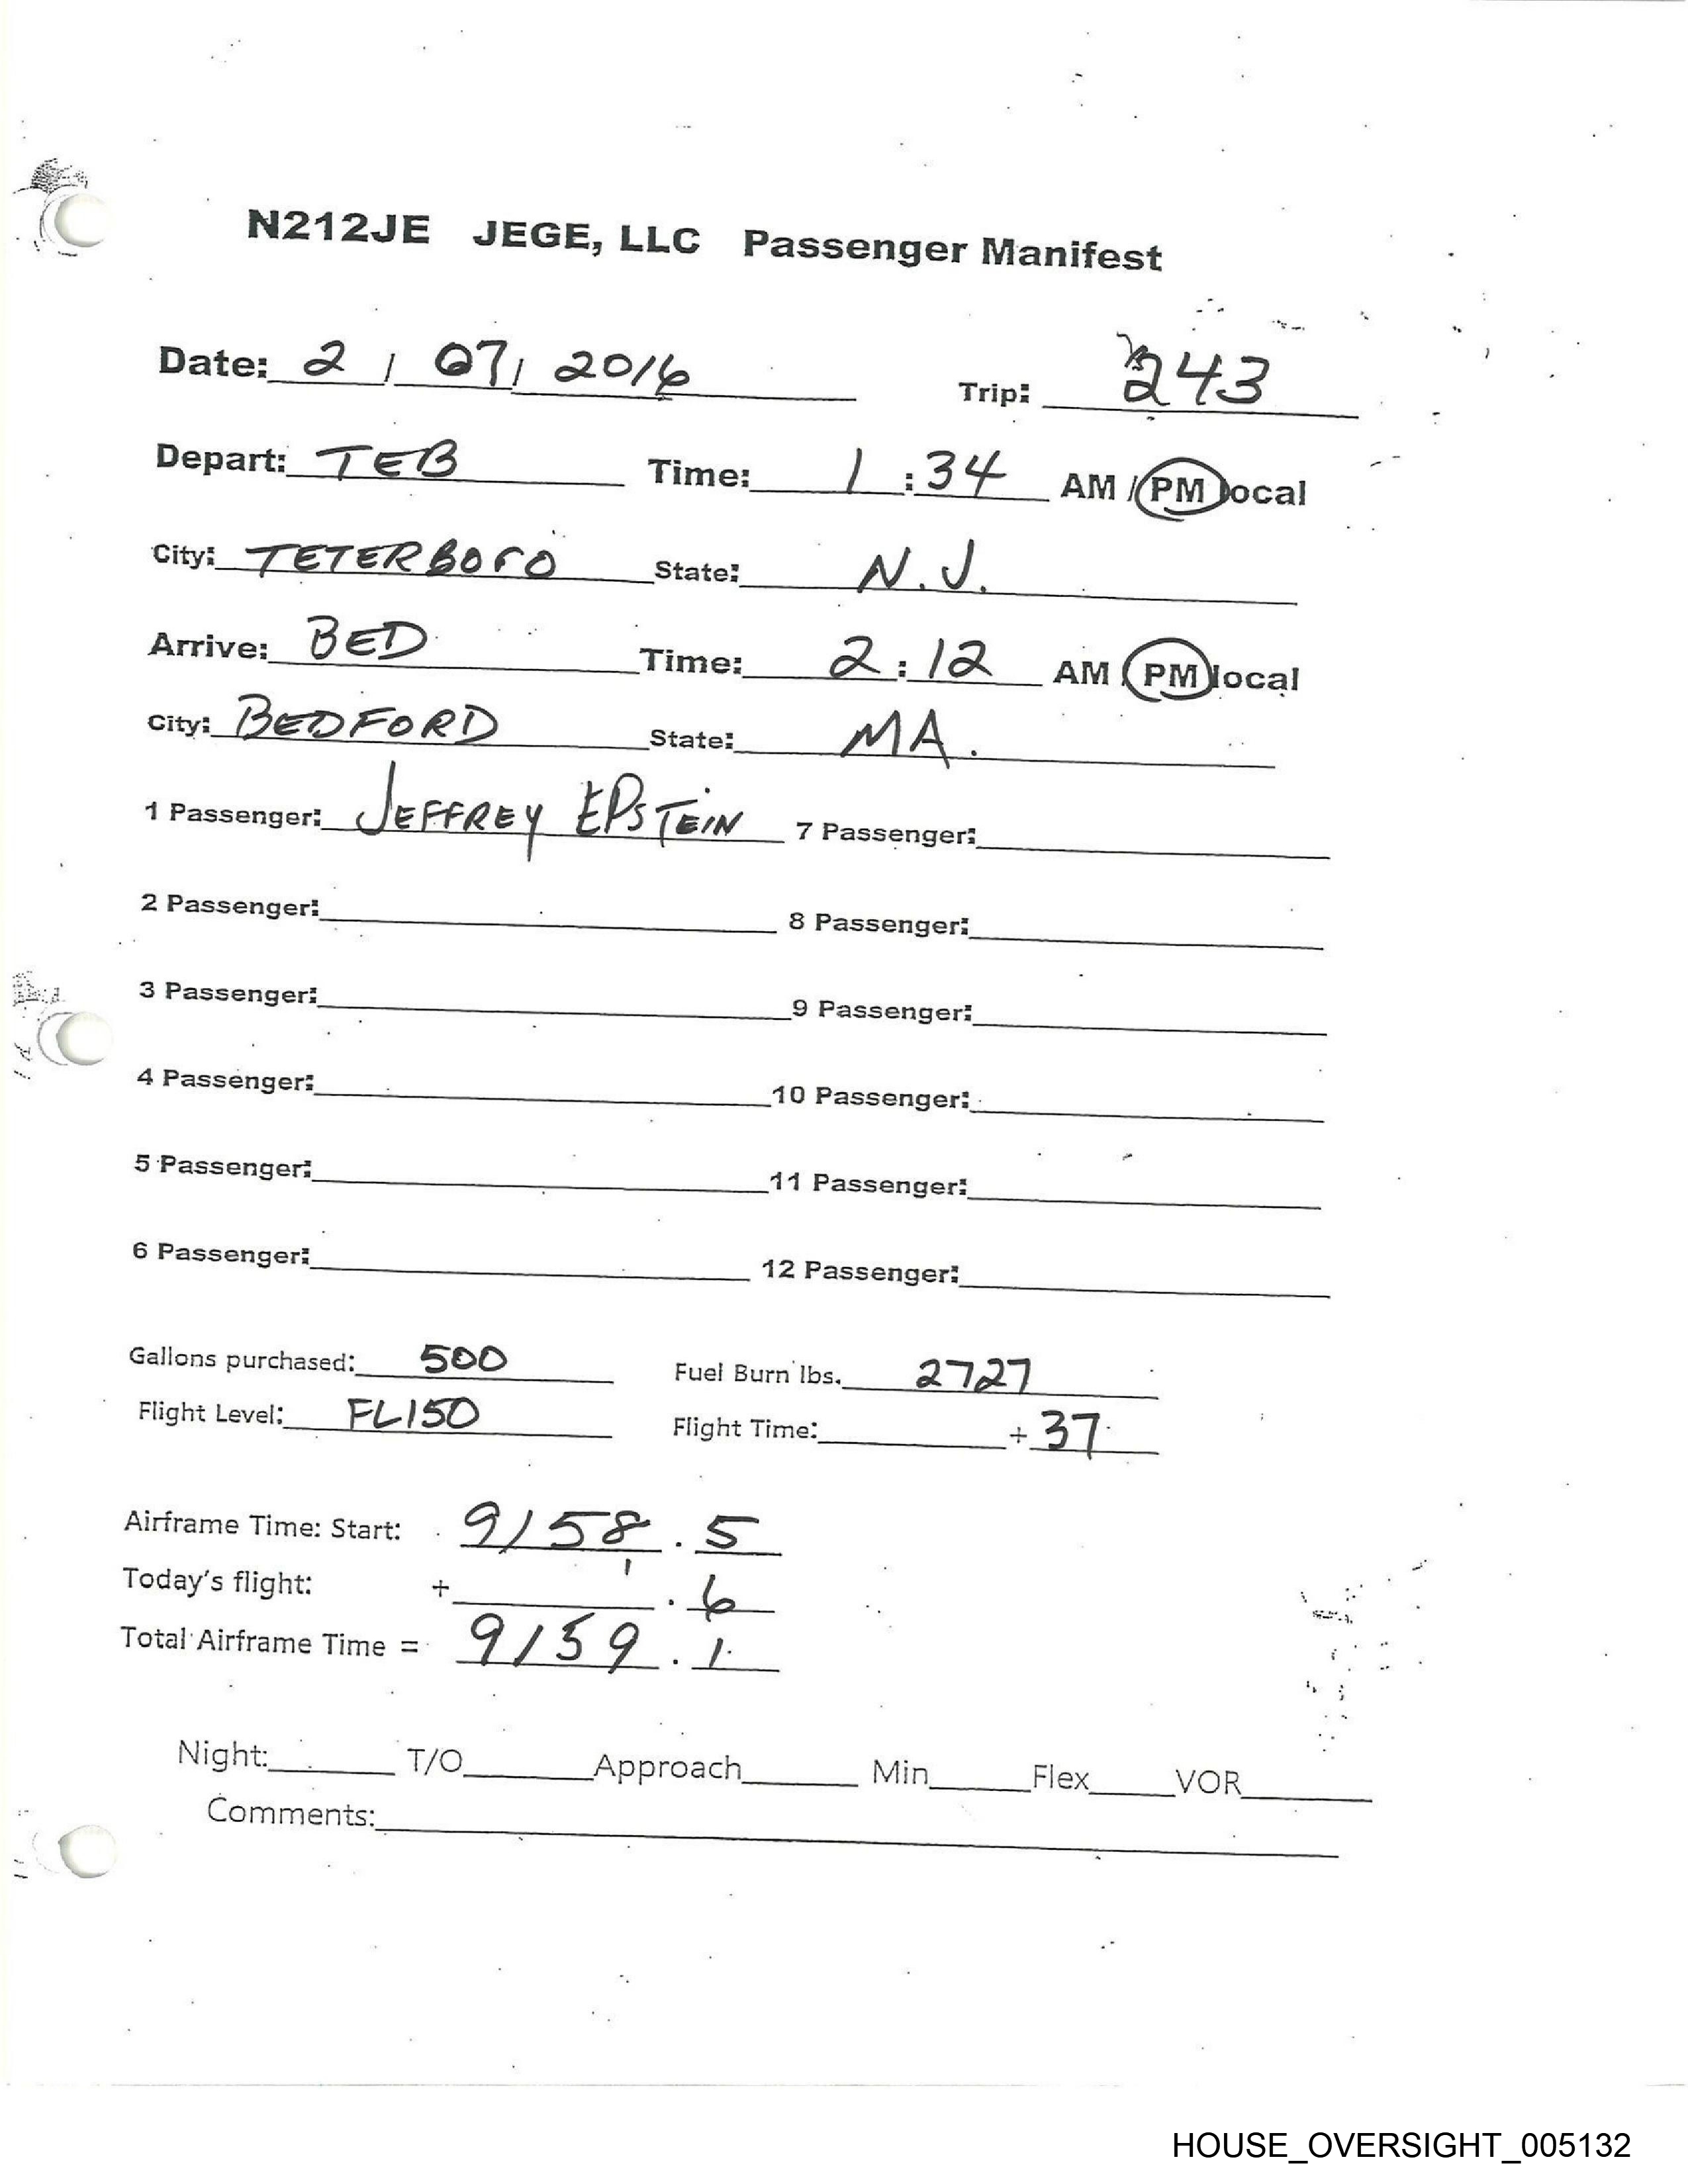 N212JE JEGE, LLC Passenger Manifest
Date: 2 / 07 / 2016 Trip: 243
Depart: TEB Time: 1 : 34 AM / PM local
City: TETERBORO State: N.J.
Arrive: BED Time: 2 : 12 AM / PM local
City: BEDFORD State: MA.
1 Passenger: JEFFREY EPSTEIN 7 Passenger:
2 Passenger: 8 Passenger:
3 Passenger: 9 Passenger:
4 Passenger: 10 Passenger:
5 Passenger: 11 Passenger:
6 Passenger: 12 Passenger:
Gallons purchased: 500 Fuel Burn lbs. 2727
Flight Level: FL150 Flight Time: + 37
Airframe Time: Start: 9158 . 5
Today's flight: + . 6
Total Airframe Time = 9159 . 1
Night: T/O Approach Min Flex VOR
Comments:
HOUSE_OVERSIGHT_005132